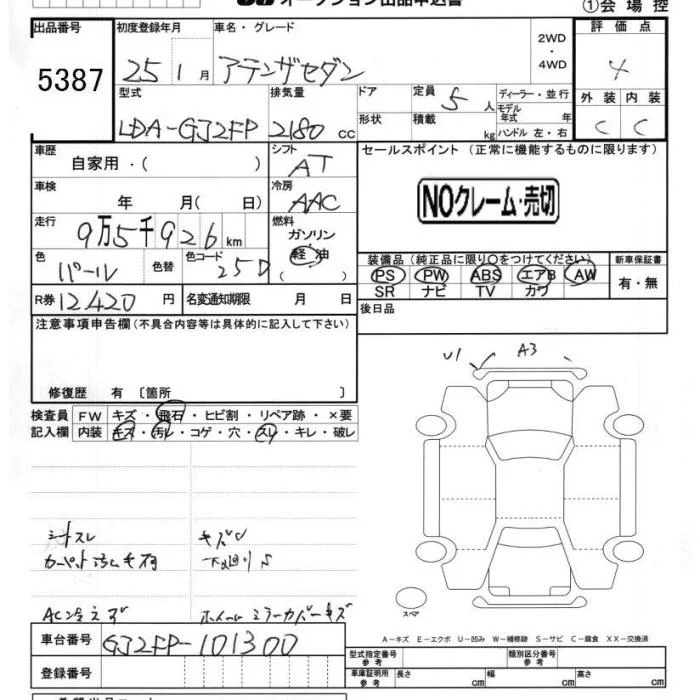 オークション出品申込書
①会場控
出品番号 初度登録年月 車名・グレード 2WD・4WD 評価点
5387 25 1月 アテンザセダン 4
型式 排気量 ドア 定員 5人 ディーラー・並行 外装 内装
LDA-GJ2FP 2180cc 形状 積載 kg モデル年式 年 ハンドル 左・右 C C
車歴 自家用・( ) シフト AT セールスポイント (正常に機能するものに限ります)
車検 年 月( 日) 冷房 AAC
NOクレーム・売切
走行 9万5千926km 燃料 ガソリン 軽油 ( )
色 パール 色替 色コード 25D
装備品(純正品に限り○をつけてください) 新車保証書
PS PW ABS エアB AW 有・無
SR ナビ TV カワ
R券 12,420円 名変通知期限 月 日 後日品
注意事項申告欄(不具合内容等は具体的に記入して下さい)
修復歴 有 〔箇所 〕
U1 A3
検査員記入欄 FW キズ・飛石・ヒビ割・リペア跡・×要
内装 キズ・汚レ・コゲ・穴・スレ・キレ・破レ
シートスレ キズU
下廻りS
AC冷えず ホイール ミラーカバーキズ
スペア
A−キズ E−エクボ U−凹み W−補修跡 S−サビ C−腐食 XX−交換済
車台番号 GJ2FP-101300
型式指定番号 参考 類別区分番号 参考
登録番号 車庫証明用 参考 長さ cm 幅 cm 高さ cm